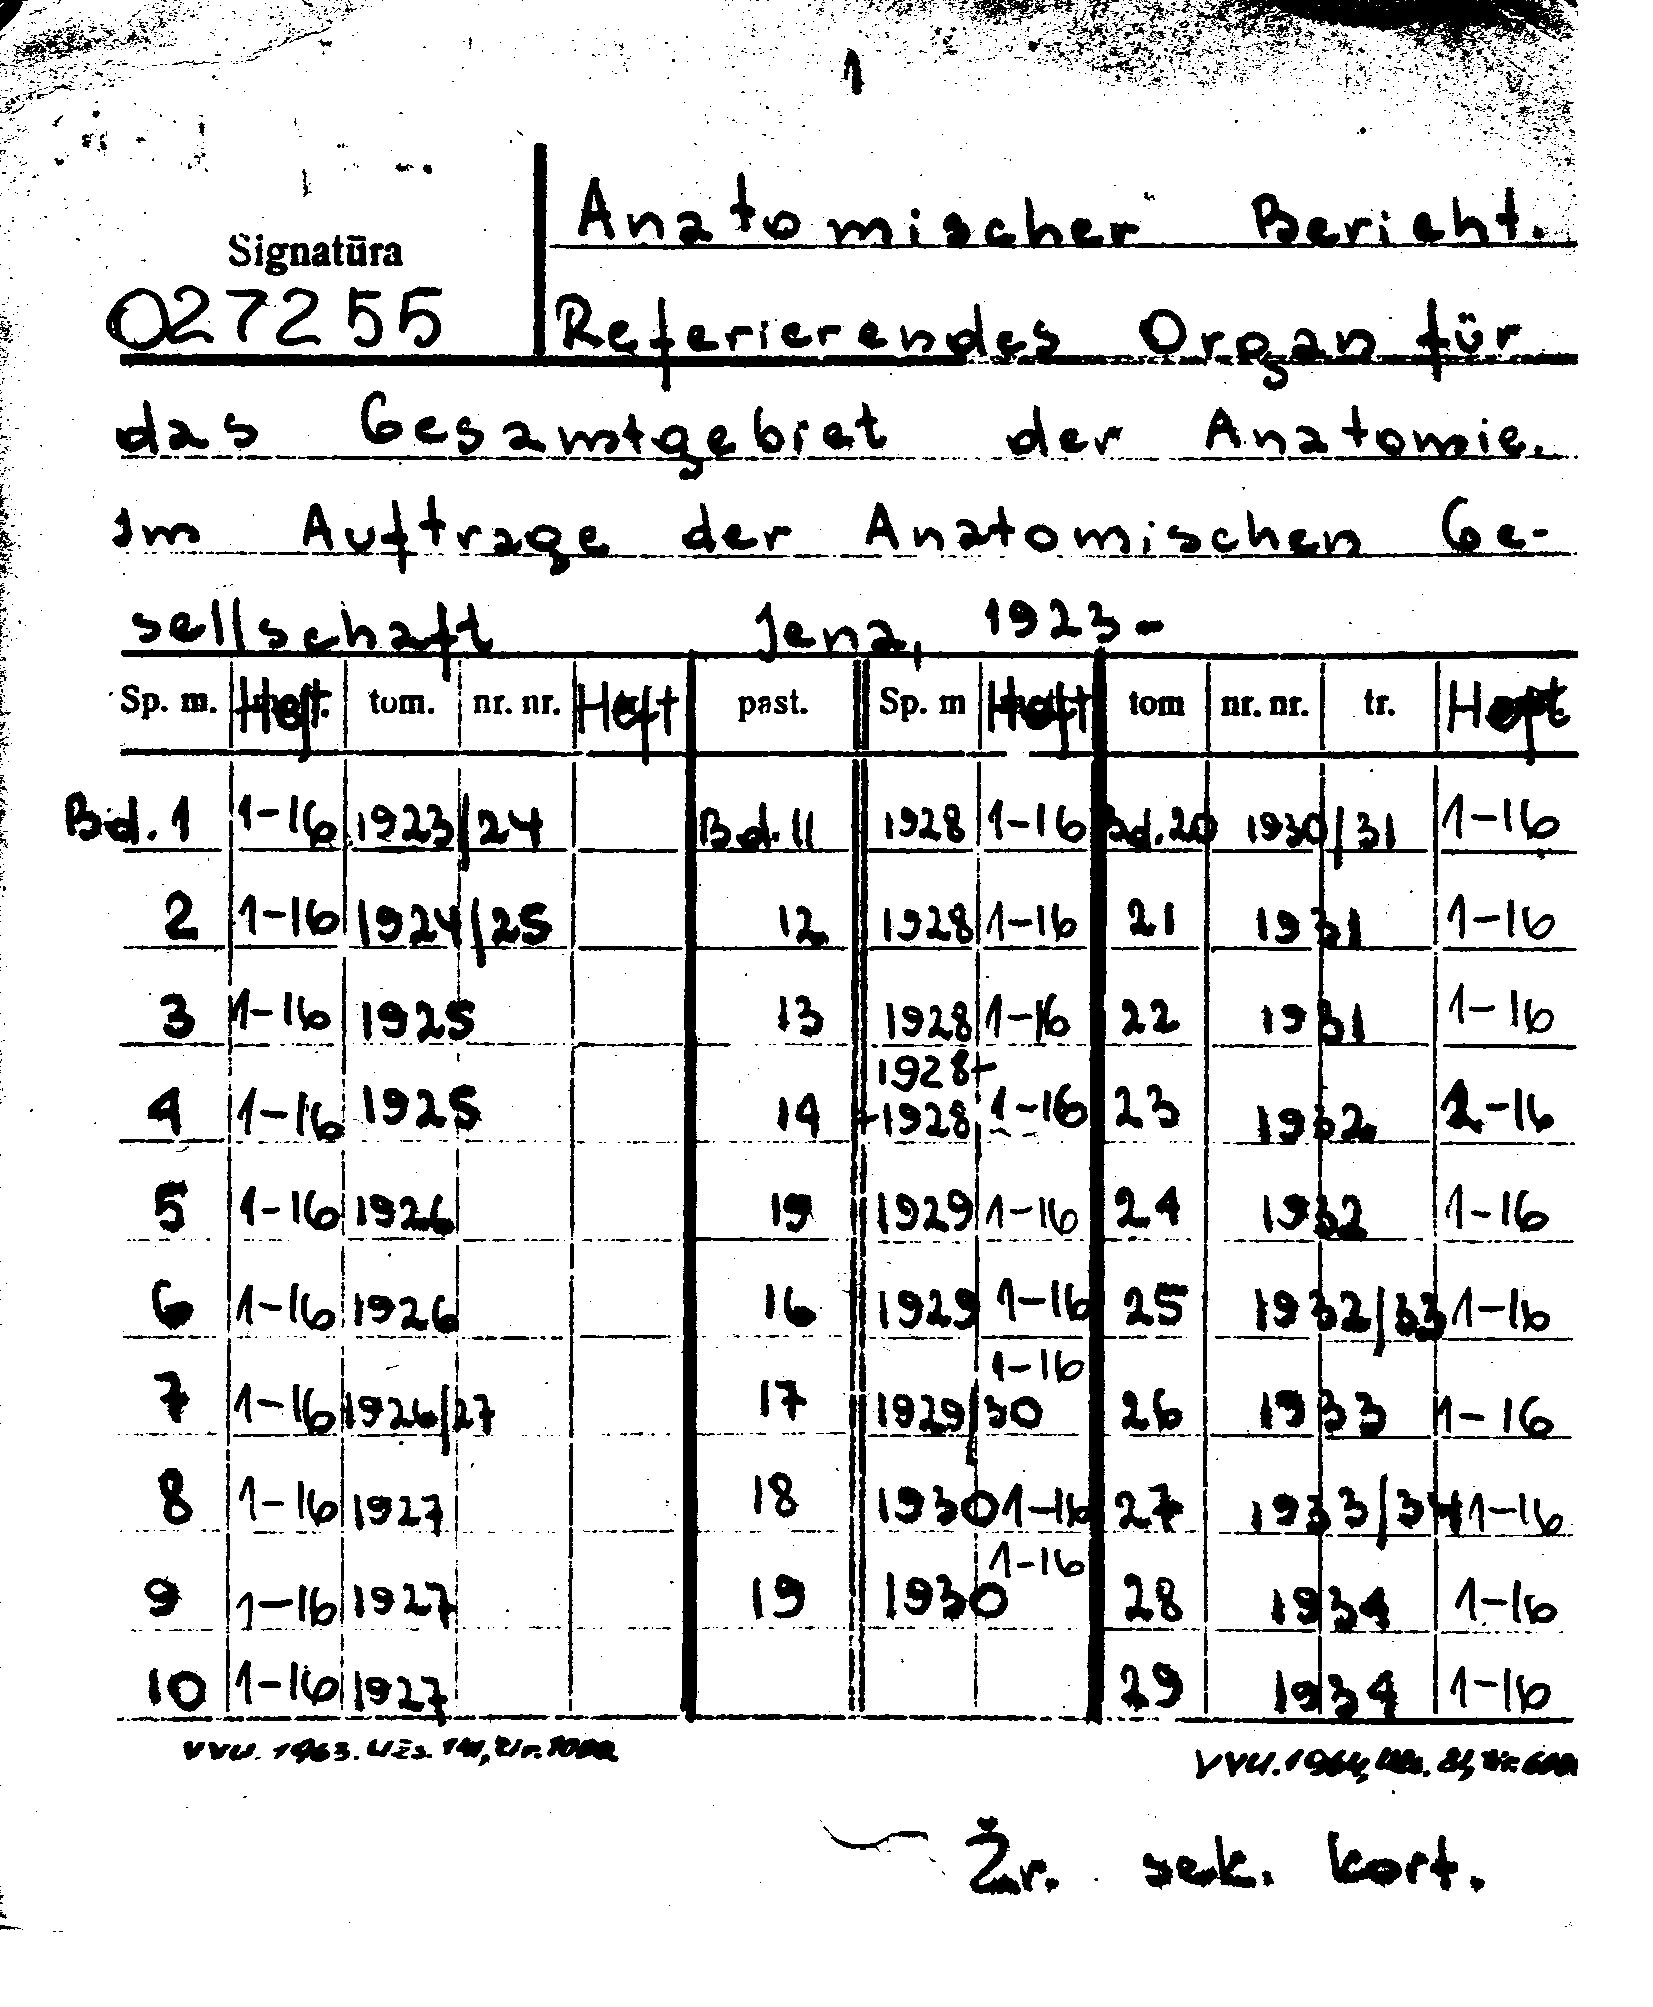 1
Anatomischer Bericht.
Signatūra
027255
Referierendes Organ für
das Gesamtgebiet der Anatomie.
Im Auftrage der Anatomischen Ge-
sellschaft Jena, 1923-
Sp. m. Heft. tom. nr. nr. Heft past. Sp. m Heft tom nr. nr. tr. Heft
Bd. 1 1-16 1923/24 Bd. 11 1928 1-16 Bd. 20 1930/31 1-16
2 1-16 1924/25 12 1928 1-16 21 1931 1-16
3 1-16 1925 13 1928 1-16 22 1931 1-16
4 1-16 1925 14 1928- -1928 1-16 23 1932 1-16
5 1-16 1926 15 1929 1-16 24 1932 1-16
6 1-16 1926 16 1929 1-16 25 1932/33 1-16
7 1-16 1926/27 17 1929/30 1-16 26 1933 1-16
8 1-16 1927 18 1930 1-16 27 1933/34 1-16
9 1-16 1927 19 1930 1-16 28 1934 1-16
10 1-16 1927 29 1934 1-16
VVU. 1963. Užs.
VVU. 1964,
Žr. sek. kort.